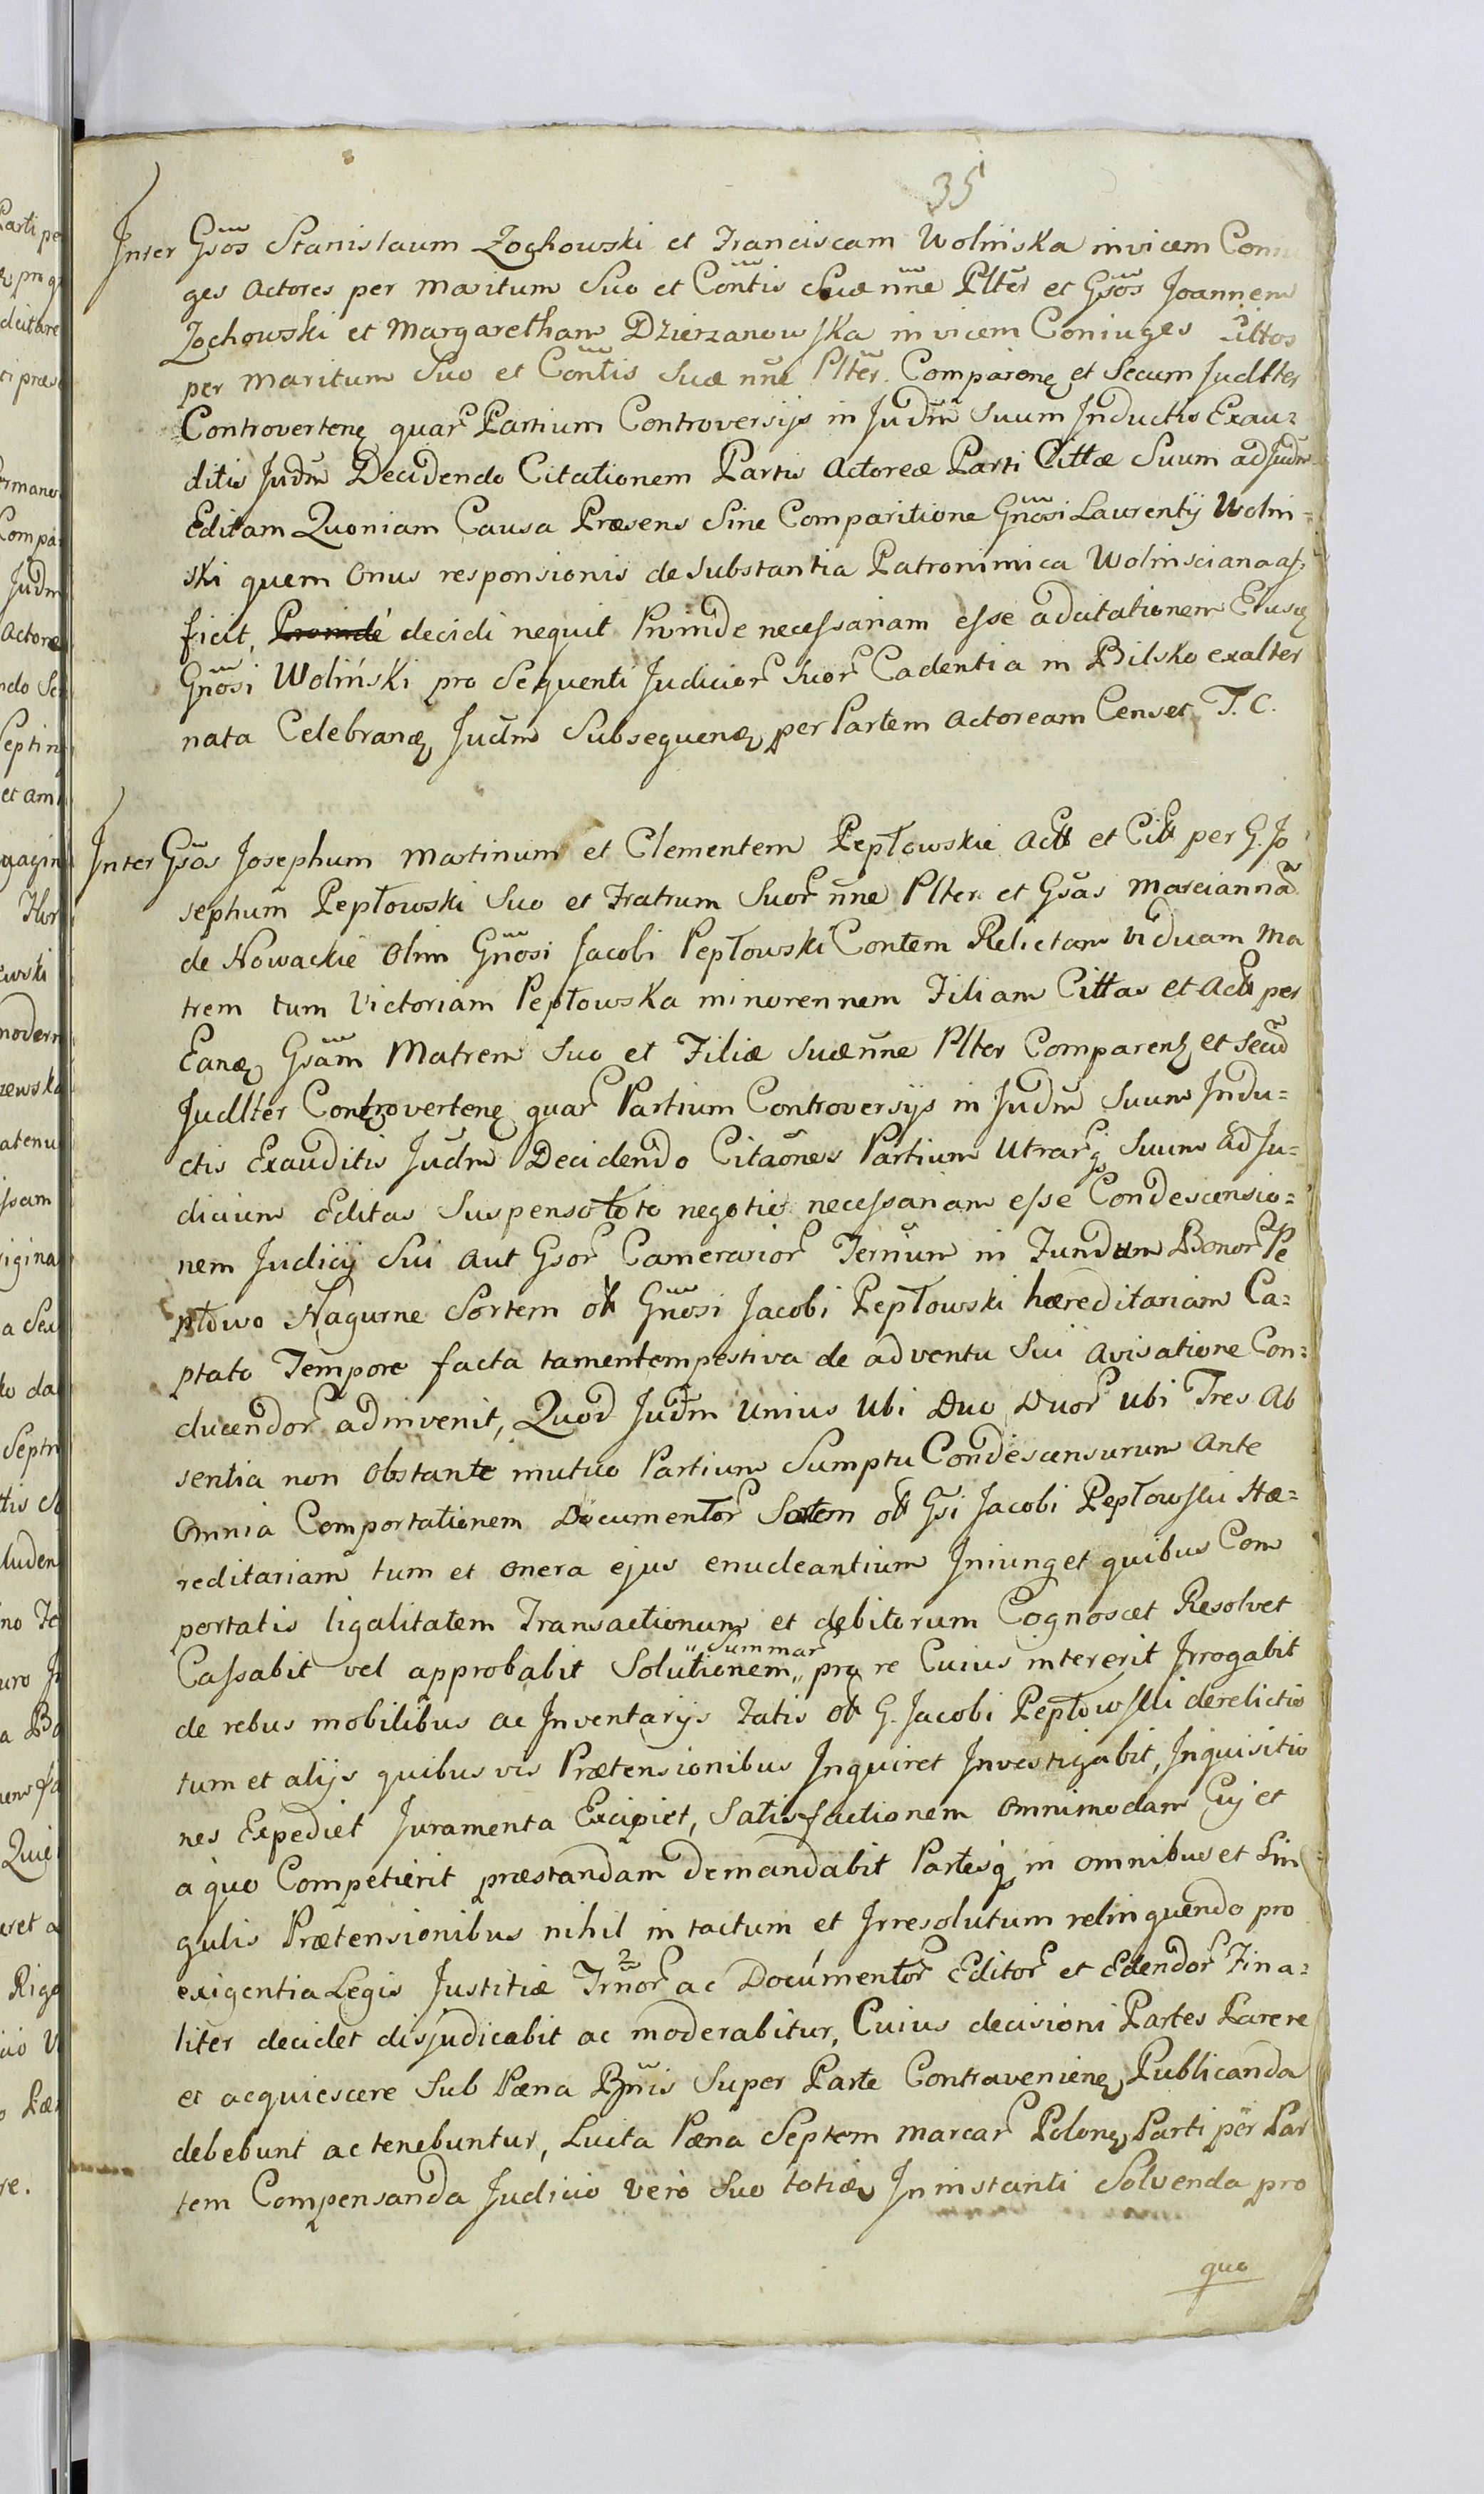 35
Inter Gsos Stanislaum Zochowski et Franciscam Wolinska invicem Coniu
ges Actores per Maritum Suo et Contis Suæ nne Plter et Gsos Joannem
Zochowski et Margaretham Dzierzanowska invicem Coniuges Cittos
per Maritum Suo et Contis Suæ nne Plter. Comparenq et Secum Judlter
Controvertenq quar Partium Controversijs in Judm Suum Inductis Exau=
ditis Judm Decidendo Citationem Partis Actoreæ Parti Cittæ Suum ad Judm
Editam Quoniam Causa Præsens Sine Comparitione Gnosi Laurentij Wolin=
ski quem Onus responsionis de Substantia Patronimica Wolinsciana af=
ficit, decidi nequit Proinde necessariam esse adcitationem Eiusq
Gnosi Woliński pro Sequenti Judicior Suor Cadentia in Bilsko exalter
nata Celebranq Judm Subsequenq per Partem Actoream Censet T. C.
Inter Gsos Josephum Martinum et Clementem Pepłowskie Actt et Citt per G. Jo
sephum Pepłowski Suo et Fratrum Suor nne Plter et Gsas Mareiannam
de Nowackie Olim Gnosi Jacobi Pepłowski Contem Relictam Viduam Ma
trem tum Victoriam Pepłowska minorennem Filiam Cittas et Actt per
Eanq Gsam Matrem Suo et Filiæ Suæ nne Plter Comparenq et Secud
Judlter Controvertenq quar Partium Controversijs in Judm Suum Indu=
ctis Exauditis Judm Decidendo Citaones Partium Utrarq Suum ad Ju=
dicium Editas Suspenso toto negotio necessariam esse Condescensio=
nem Judicij Sui aut Gsor Camerarior Ternum in Fundum Bonor Pe
płowo Nagurne Sortem ol Gnosi Jacobi Pepłowski hæreditariam Ca=
ptato Tempore facta tamen tempestiva de adventu Sui Avisatione Con=
ducendor adinvenit, Quod Judm Unius Ubi Duo Duor Ubi Tres Ab
sentia non Obstante mutuo Partium Sumptu Condescensurum Ante
Omnia Comportationem Documentor Sortem ol Gsi Jacobi Pepłowski Hæ=
reditariam tum et onera ejus enucleantium Iniunget quibus Com
portatis ligalitatem Transactionum et debitorum Cognoscet Resolvet
Cassabit vel approbabit Solutionem „Summar„ pro re Cuius intererit Irrogabit
de rebus mobilibus ac Inventarijs Fatis ol G. Jacobi Pepłowski derelictis
tum et alijs quibusvis Prætensionibus Inquiret Investigabit, Inquisitio
nes Expediet Juramenta Excipiet, Satisfactionem Omnimodam Cuj et
a quo Competierit præstandam demandabit Partesq in omnibus et Sin
gulis Prætensionibus nihil intactum et Irresolutum relinquendo pro
exigentia Legis Justitiæ Irnor ac Documentor Editor et Edendor Fina=
liter decidet disjudicabit ac moderabitur, Cuius decisioni Partes Parere
et acquiescere Sub Pæna Bnis Super Parte Contravenienq Publicanda
debebunt ac tenebuntur, Luita Pæna Septem Marcar Polonq Parti per Par
tem Compensanda Judicio vero Suo totiæ In instanti Solvenda pro
quo